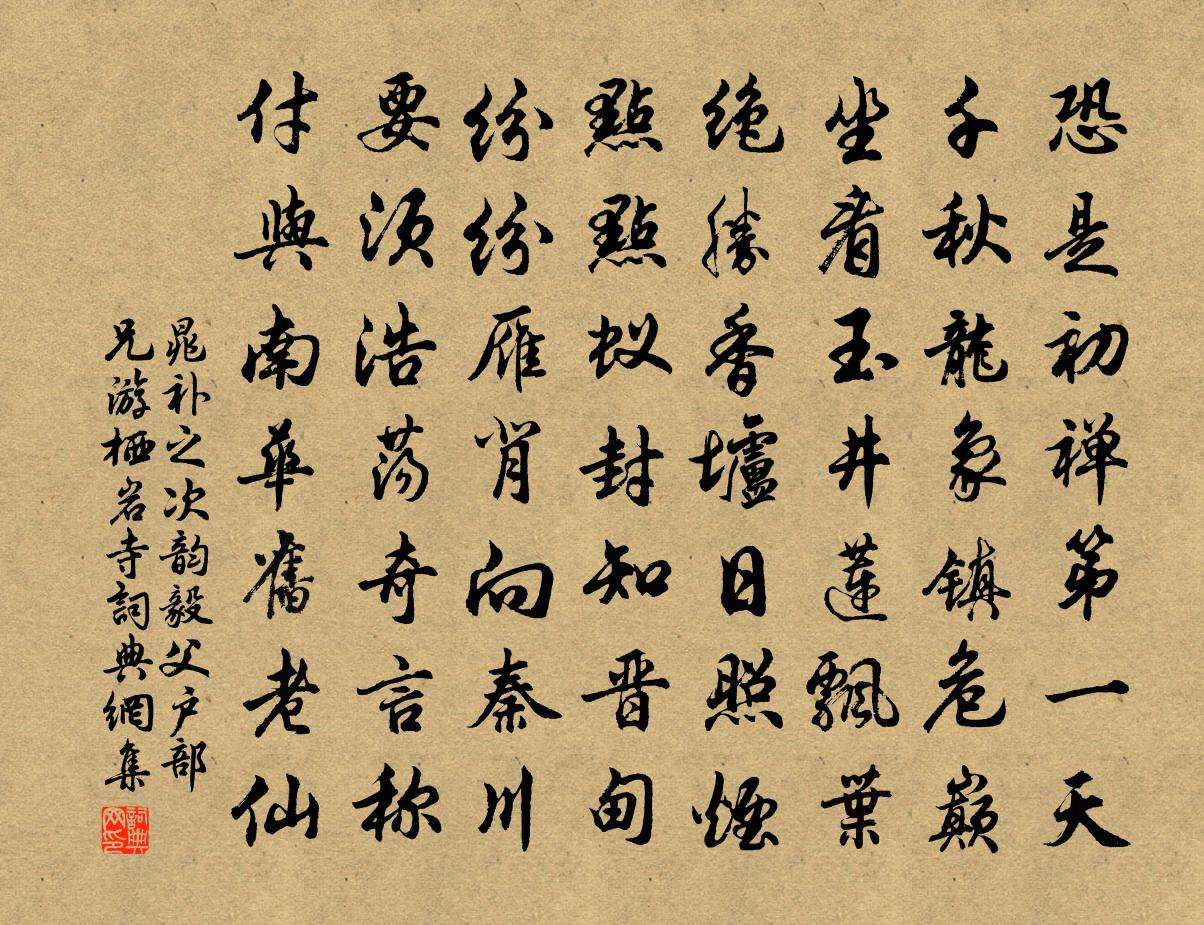 恐是初禅第一天
千秋龍象镇危巔
坐看玉井蓮飄葉
绝勝香壚日照煙
點點蚁封知晋甸
纷纷雁背向秦川
要须浩荡奇言称
付與南華舊老仙
晁补之次韵毅父户部
兄游栖岩寺詞典網集
詞典网印